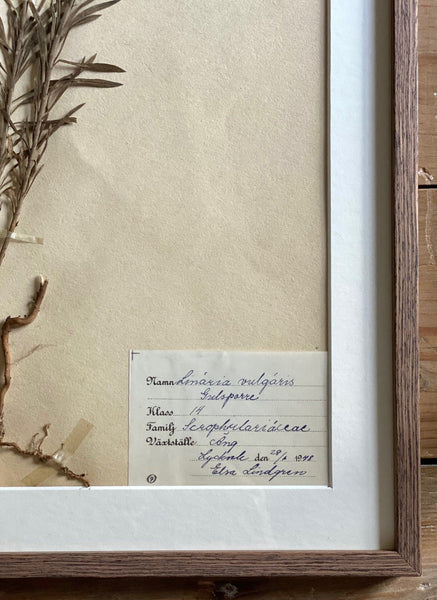 Namn Linária vulgáris
Gulsporre
Klass 14
Familj Scrophulariáceae
Växtställe Äng
den 29/ 1948
Elsa Lindgren